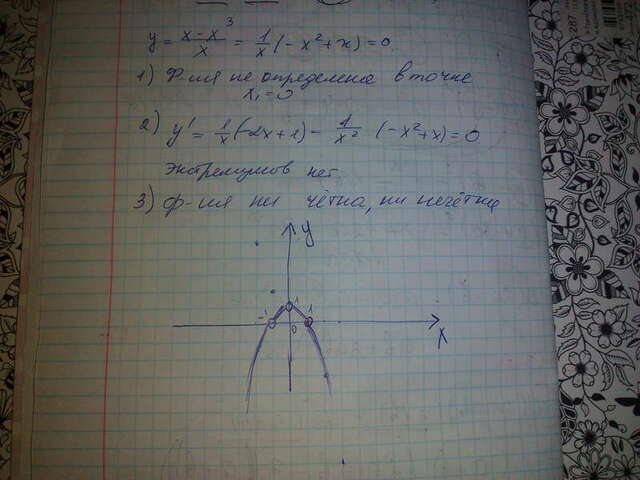 y = x-x³/x = 1/x (-x²+x) = 0
1) Ф-ия не определена в точке
x₁=0
2) y' = 1/x (-2x+1) - 1/x² (-x²+x) = 0
Экстремумов нет.
3) ф-ия ни чётна, ни нечётна
y
-1 1 1
0
x